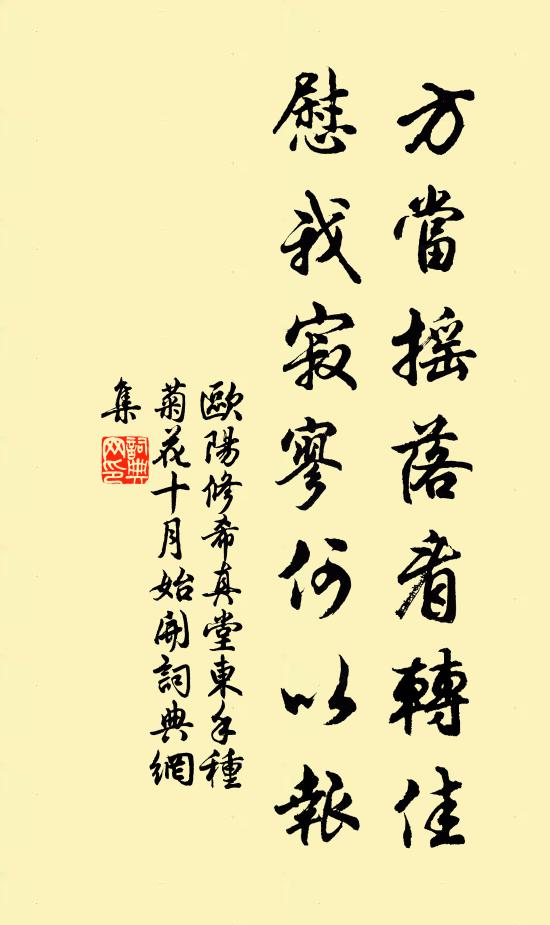 方當搖落看轉佳
慰我寂寥何以報
歐陽修希真堂東手種
菊花十月始開詞典網
集
詞典網印